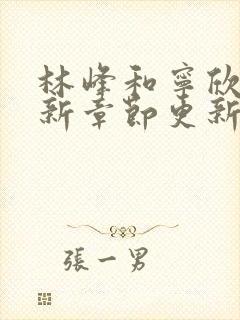 林峰和寧欣
新章節更新
張一男